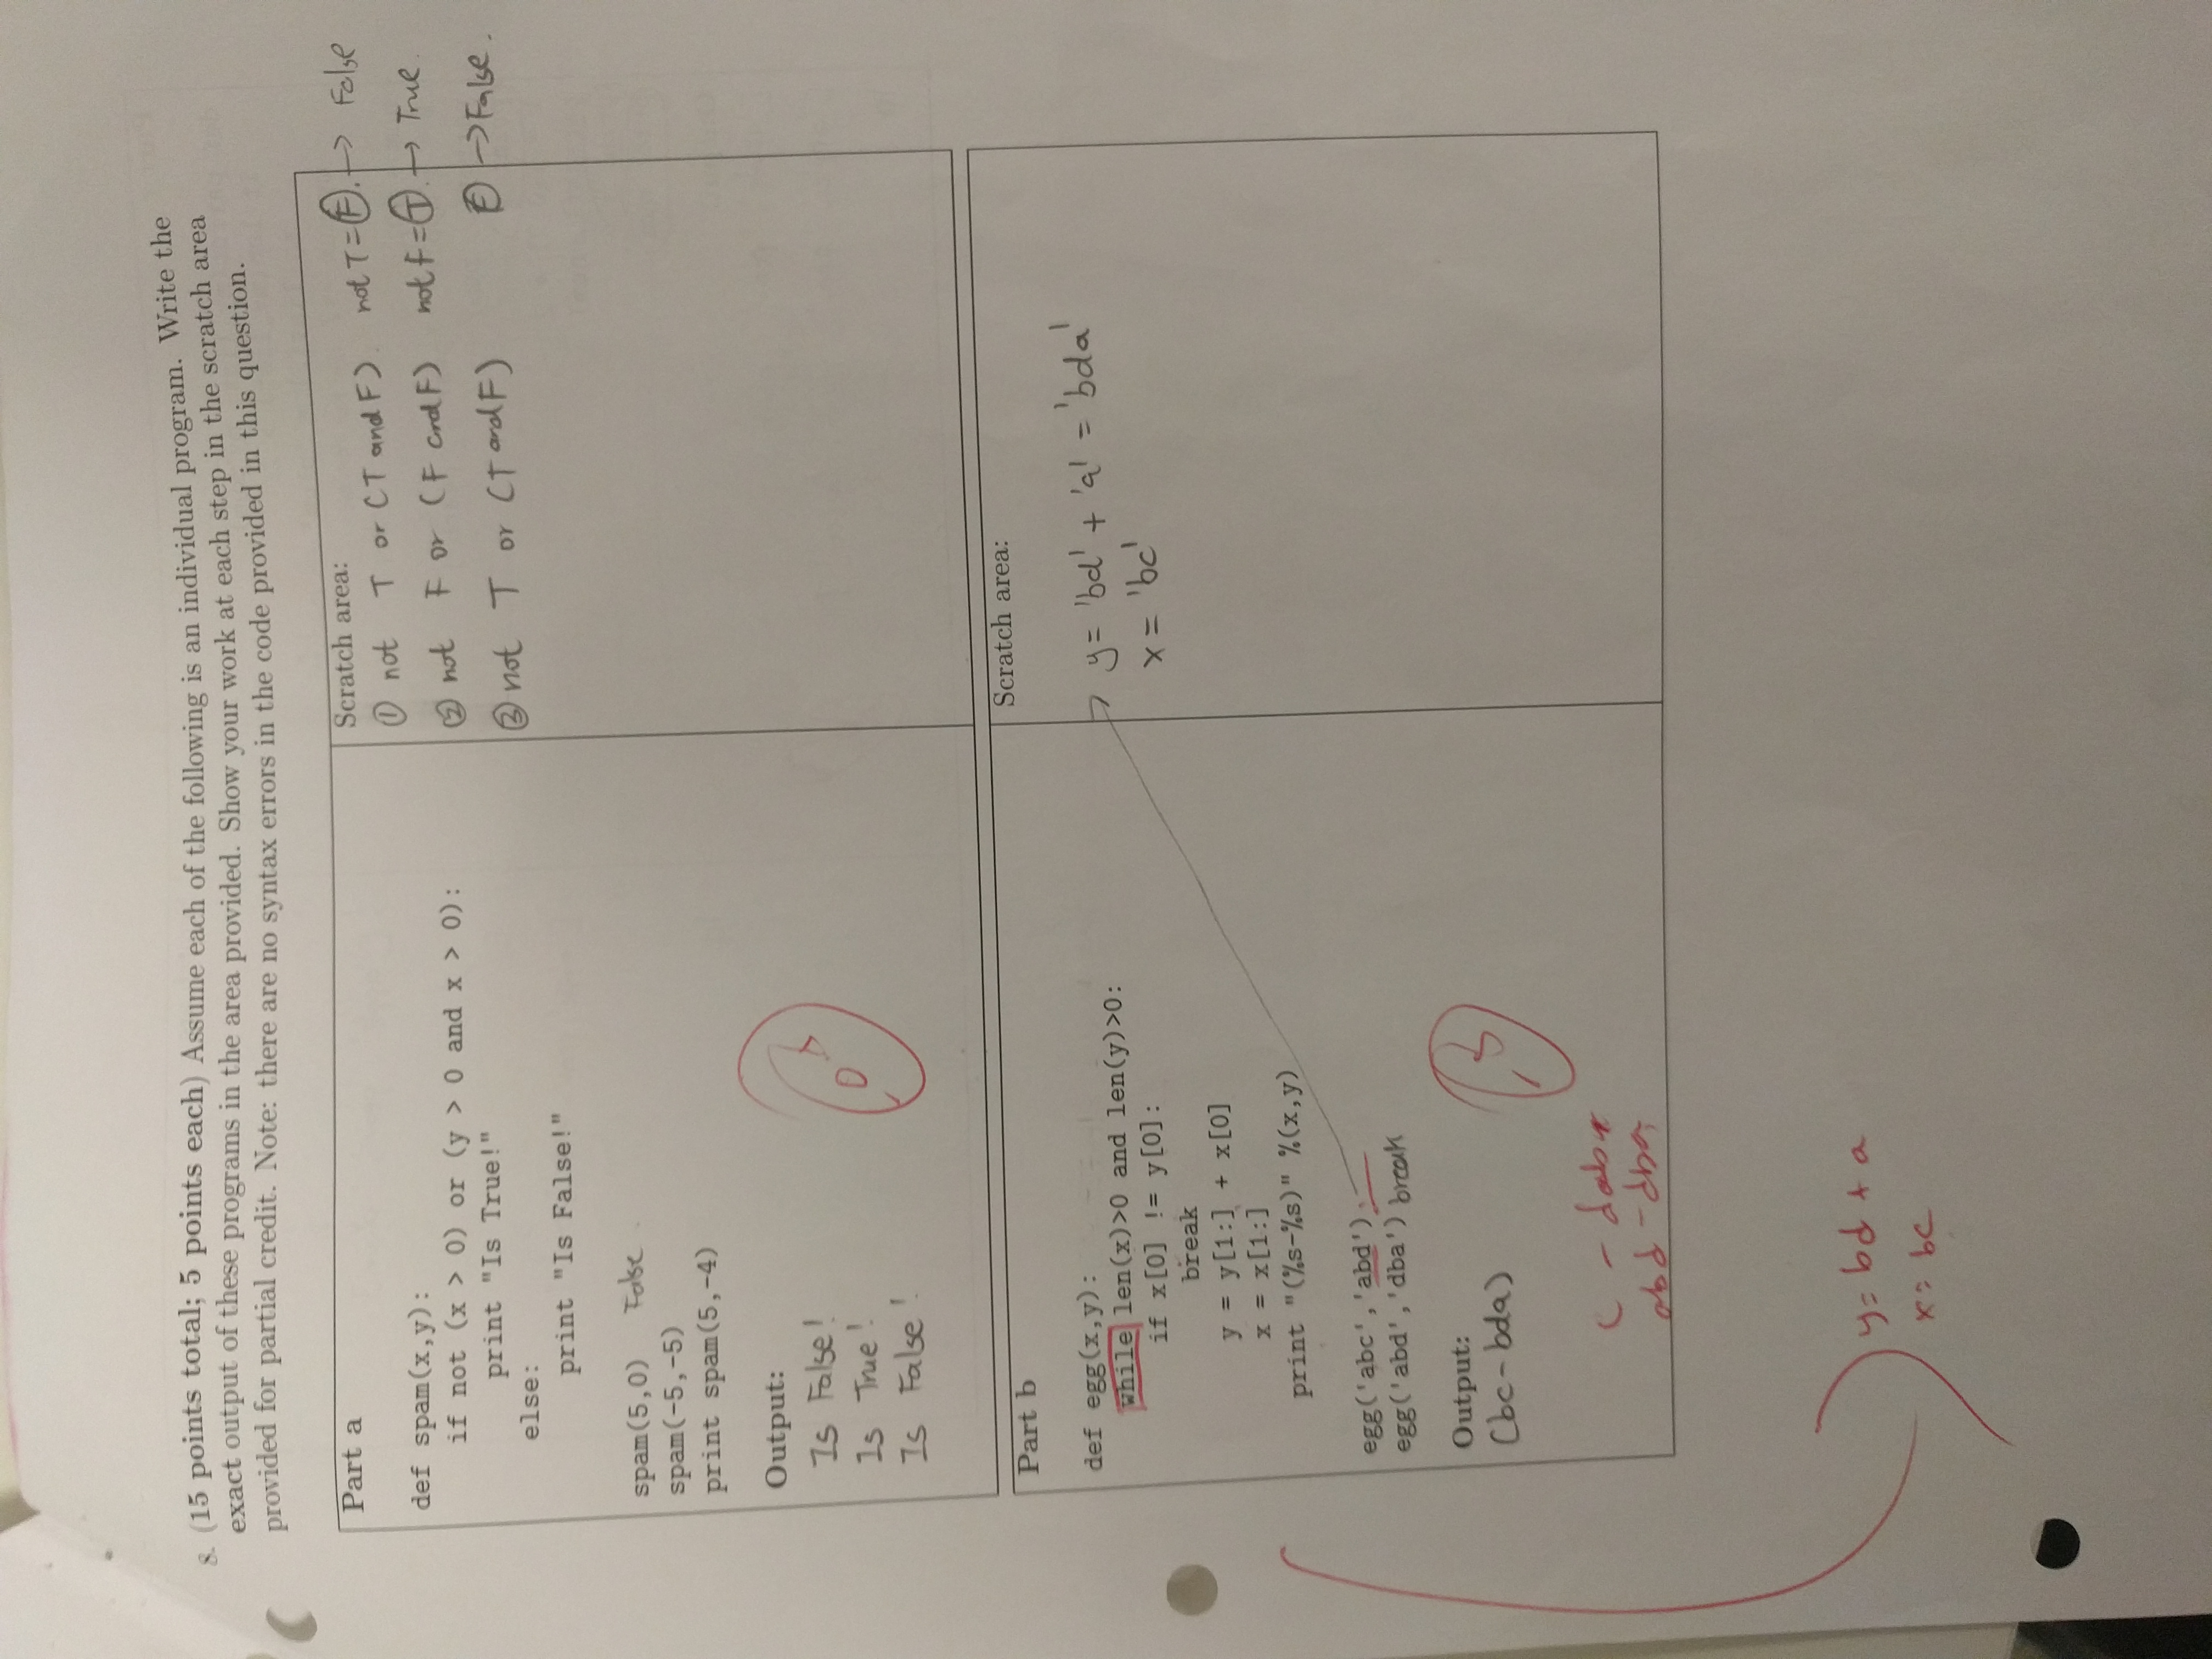 8. (15 points total; 5 points each) Assume each of the following is an individual program. Write the
exact output of these programs in the area provided. Show your work at each step in the scratch area
provided for partial credit. Note: there are no syntax errors in the code provided in this question.
Part a
def spam(x,y):
if not (x > 0) or (y > 0 and x > 0):
print "Is True!"
else:
print "Is False!"
spam(5,0) False
spam(-5,-5)
print spam(5,-4)
Output:
Is False!
Is True!
Is False!
Scratch area:
① not T or (T and F) not T = F. → False
② not F or (F and F) not F = T. → True.
③ not T or (T and F) F → False.
Part b
def egg(x,y):
while len(x)>0 and len(y)>0:
if x[0] != y[0]:
break
y = y[1:] + x[0]
x = x[1:]
print "(%s-%s)" %(x,y)
egg('abc','abd')
egg('abd','dba') break
Output:
(bc-bda)
abd - dba
Scratch area:
y = 'bd' + 'a' = 'bda'
x = 'bc'
y = bd + a
x = bc